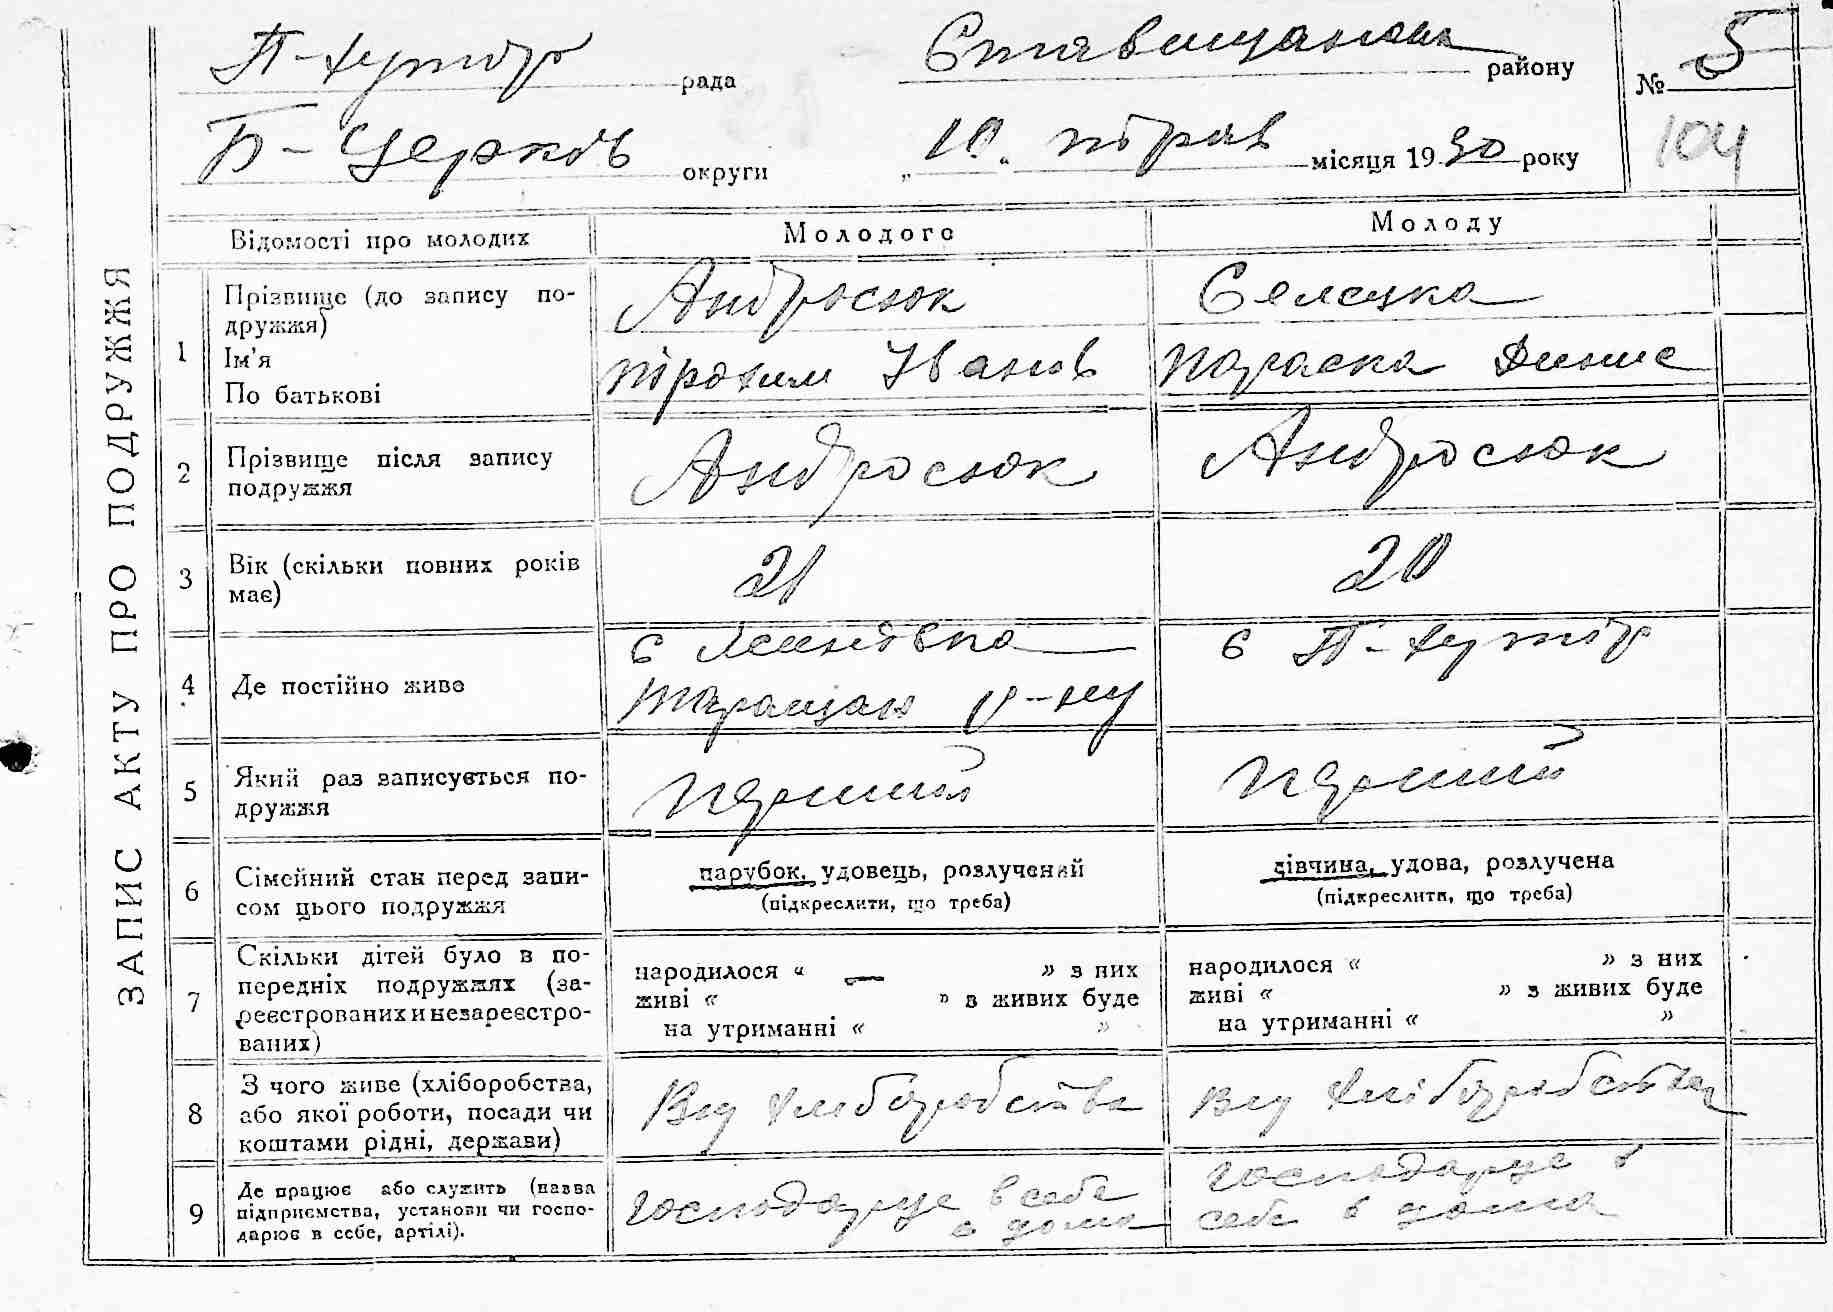 П-Хутір рада Ставищанськ району № 5
Б-Церків округи „10“ трав місяця 1930 року 104
ЗАПИС АКТУ ПРО ПОДРУЖЖЯ
Відомості про молодих Молодого Молоду
1 Прізвище (до запису по-
дружжя)
Ім'я
По батькові
Андросюк
Трохим Іванів
Селецка
Параска Денис
2 Прізвище після запису
подружжя
Андросюк
Андросюк
3 Вік (скільки повних років
має)
21
20
4 Де постійно живе
с
Таращан р-ну
с П-Хутір
5 Який раз записується по-
дружжя
перший
перший
6 Сімейний стан перед запи-
сом цього подружжя
парубок, удовець, розлучений
(підкреслити, що треба)
дівчина, удова, розлучена
(підкреслити, що треба)
7 Скільки дітей було в по-
передніх подружжях (за-
реєстрованих и незареєстро-
ваних)
народилося „ — ” з них
живі „ ” з живих буде
на утриманні „ ”
народилося „ ” з них
живі „ ” з живих буде
на утриманні „ ”
8 З чого живе (хліборобства,
або якої роботи, посади чи
коштами рідні, держави)
Від хліборобства
Від хліборобства
9 Де працює або служить (назва
підприємства, установи чи госпо-
дарює в себе, артілі).
господарує в себе
в дома
господарує в
себе в дома